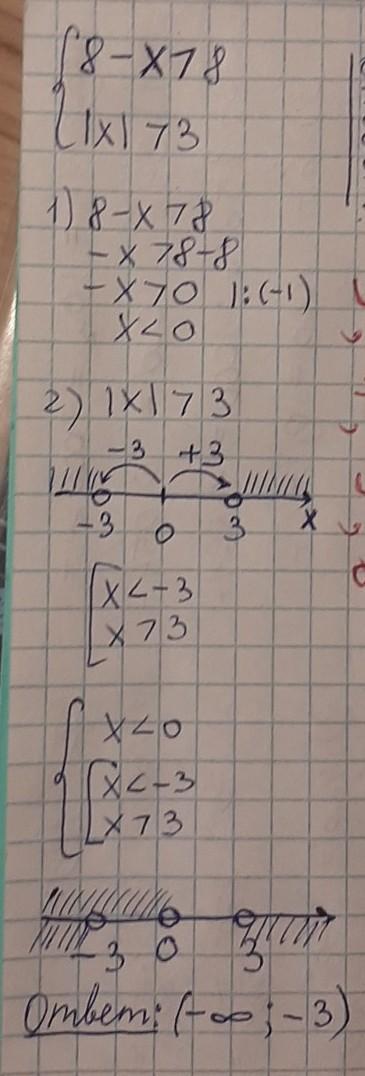 8-x>8
|x|>3
1) 8-x>8
-x>8-8
-x>0 |:(-1)
x<0
2) |x|>3
-3 +3
-3 0 3 x
x<-3
x>3
x<0
x<-3
x>3
-3 0 3
Ответ: (-∞; -3)